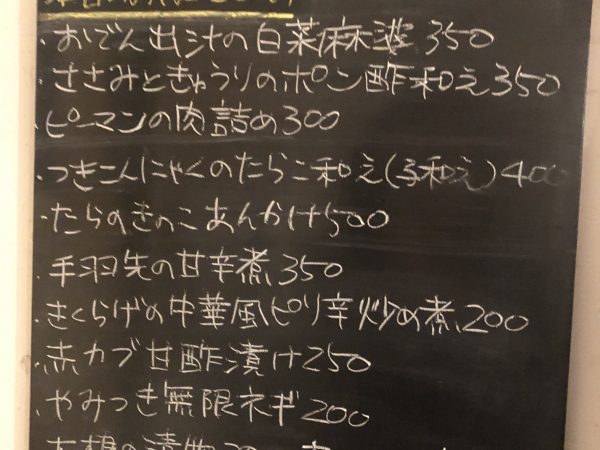 ・おでん出汁の白菜麻婆 350
・ささみときゅうりのポン酢和え350
・ピーマンの肉詰め300
・つきこんにゃくのたらこ和え(子和え)400
・たらのきのこあんかけ500
・手羽先の甘辛煮 350
・きくらげの中華風ピリ辛炒め煮 200
・赤カブ甘酢漬け250
・やみつき無限ネギ200